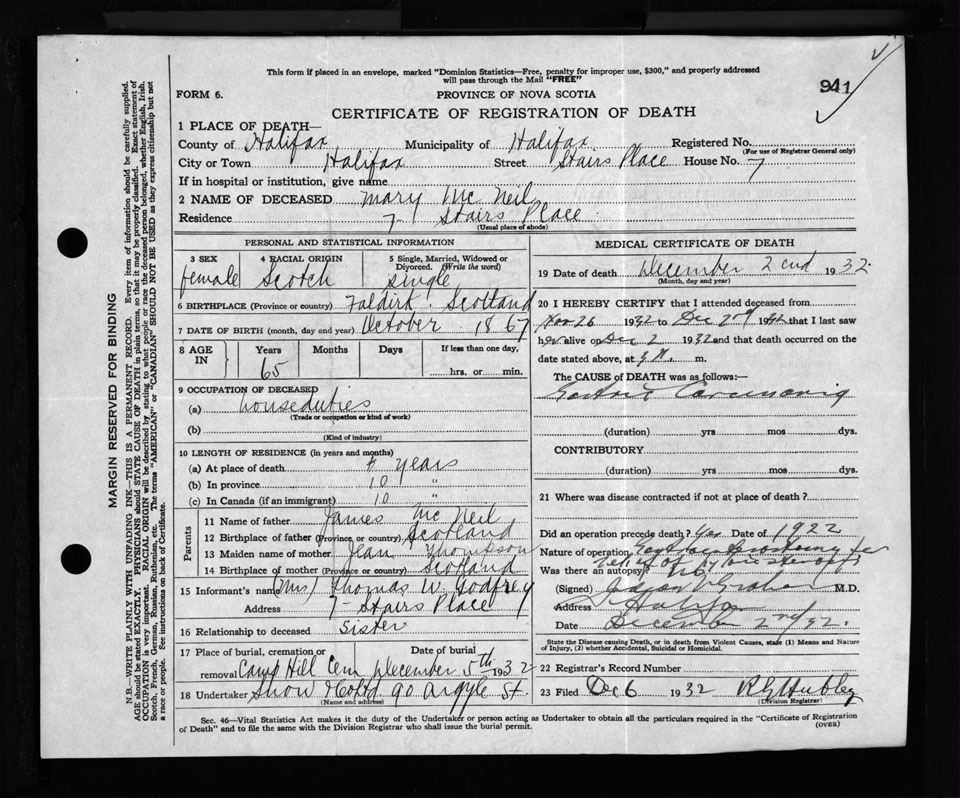 This form if placed in an envelope, marked "Dominion Statistics—Free, penalty for improper use, $300," and properly addressed
will pass through the Mail "FREE"
941
FORM 6.
PROVINCE OF NOVA SCOTIA
CERTIFICATE OF REGISTRATION OF DEATH
1 PLACE OF DEATH—
County of Halifax Municipality of Halifax Registered No.
(For use of Registrar General only)
City or Town Halifax Street Stairs Place House No. 7
If in hospital or institution, give name
2 NAME OF DECEASED Mary Mc Neil
Residence 7 - Stairs Place
(Usual place of abode)
PERSONAL AND STATISTICAL INFORMATION
3 SEX 4 RACIAL ORIGIN 5 Single, Married, Widowed or
Divorced. (Write the word)
female Scotch single
6 BIRTHPLACE (Province or country) Faldirk Scotland
7 DATE OF BIRTH (month, day and year) October 1867
8 AGE IN Years Months Days If less than one day,
65 hrs. or min.
9 OCCUPATION OF DECEASED
(a) house duties
(Trade or occupation or kind of work)
(b)
(Kind of industry)
10 LENGTH OF RESIDENCE (in years and months)
(a) At place of death years
(b) In province 10 "
(c) In Canada (if an immigrant) 10 "
Parents
11 Name of father James Mc Neil
12 Birthplace of father (Province or country) Scotland
13 Maiden name of mother Jean Thompson
14 Birthplace of mother (Province or country) Scotland
15 Informant's name (Mrs) Thomas W. Godfrey
Address 7 - Stairs Place
16 Relationship to deceased sister
17 Place of burial, cremation or removal Date of burial
Camp Hill Cem December 5th 1932
18 Undertaker Snow & Co Ltd 90 Argyle St.
(Name and address)
MEDICAL CERTIFICATE OF DEATH
19 Date of death December 2cnd 1932
(Month, day and year)
20 I HEREBY CERTIFY that I attended deceased from
Nov 26 1932 to Dec 2nd 1932 that I last saw
her alive on Dec 2 1932 and that death occurred on the
date stated above, at m.
The CAUSE of DEATH was as follows:—
(duration) yrs mos dys.
CONTRIBUTORY
(duration) yrs mos dys.
21 Where was disease contracted if not at place of death?
Did an operation precede death? Yes Date of 1922
Nature of operation
Was there an autopsy? No
(Signed) M.D.
Address Halifax
Date December 2nd/32.
State the Disease causing Death, or in death from Violent Causes, state (1) Means and Nature
of Injury, (2) whether Accidental, Suicidal or Homicidal.
22 Registrar's Record Number
23 Filed Dec 6 1932 Hubley
(Division Registrar)
Sec. 46—Vital Statistics Act makes it the duty of the Undertaker or person acting as Undertaker to obtain all the particulars required in the "Certificate of Registration
of Death" and to file the same with the Division Registrar who shall issue the burial permit.
(OVER)
MARGIN RESERVED FOR BINDING
N.B.—WRITE PLAINLY WITH UNFADING INK—THIS IS A PERMANENT RECORD. Every item of information should be carefully supplied.
AGE should be stated EXACTLY. PHYSICIANS should STATE CAUSE OF DEATH in plain terms, so that it may be properly classified. Exact statement of
OCCUPATION is very important. RACIAL ORIGIN will be described by stating to what people or race the deceased person belonged, whether English, Irish,
Scotch, French, German, Russian, Ruthenian, etc. The terms "AMERICAN" or "CANADIAN" SHOULD NOT BE USED as they express citizenship but not
a race or people. See instructions on back of Certificate.